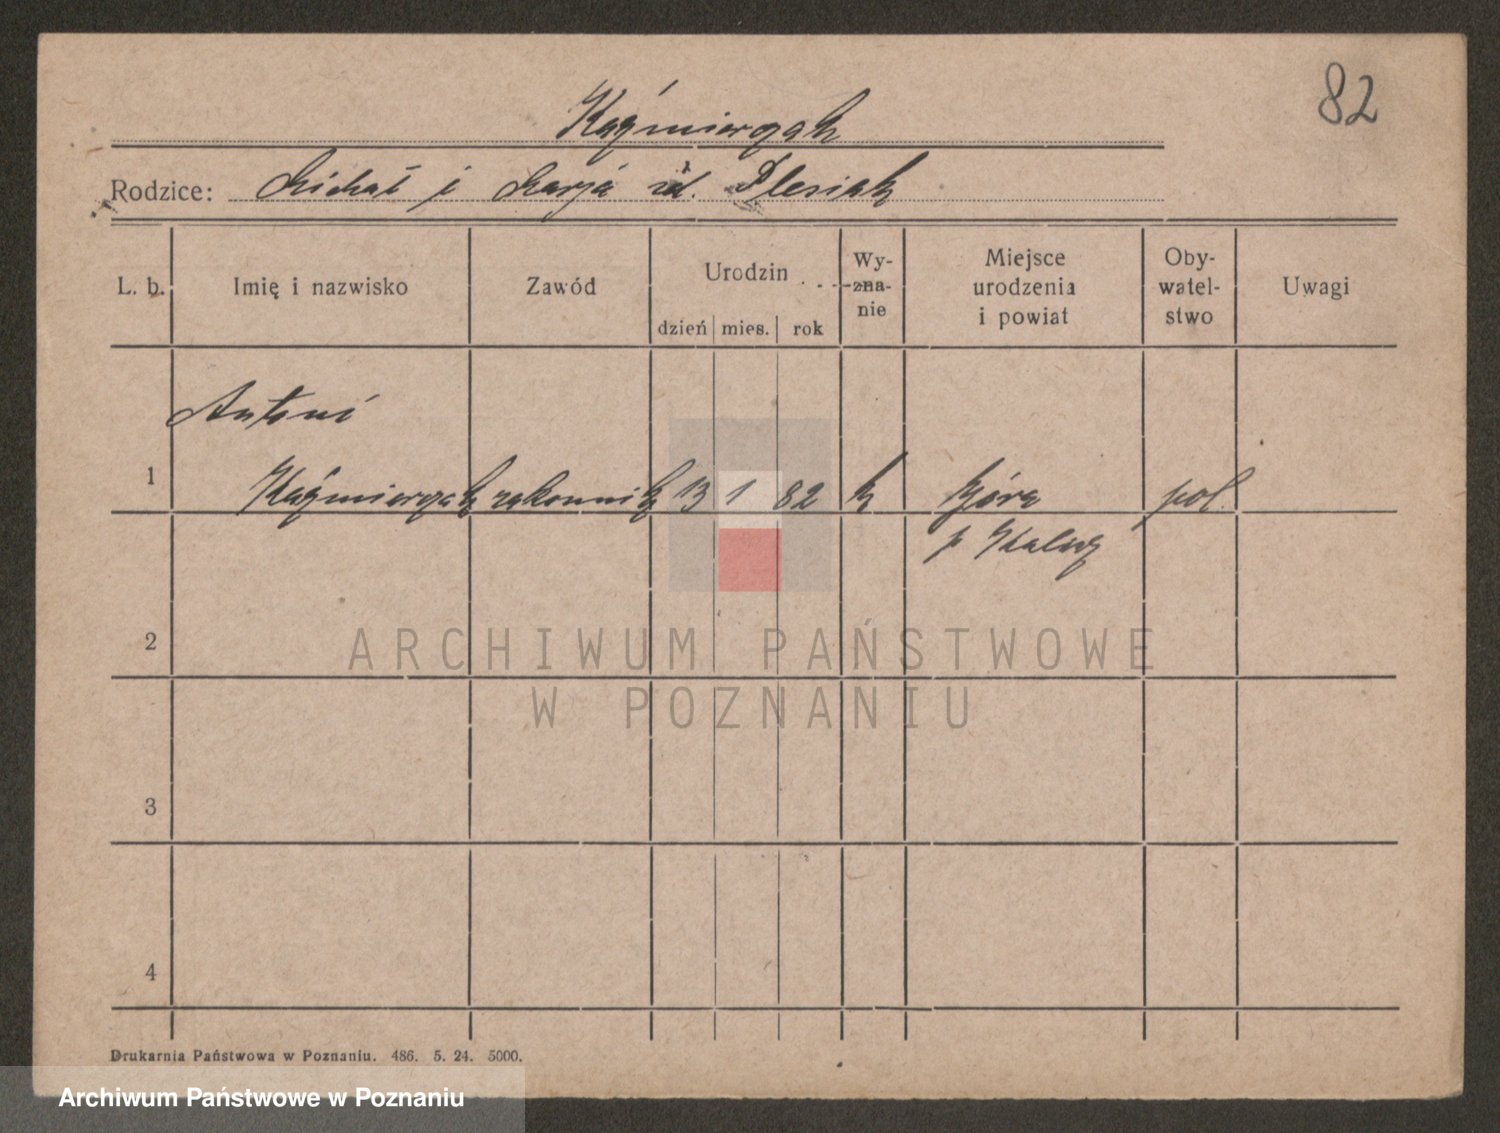 82
Kaźmierczak
Rodzice: Michał i Marja zd. Plesiak
L. b. Imię i nazwisko Zawód Urodzin dzień mies. rok Wy-zna-nie Miejsce urodzenia i powiat Oby-watel-stwo Uwagi
Antoni
1 Kaźmierczak zakonnik 13 1 82 k Góra pol.
p
2
3
4
Drukarnia Państwowa w Poznaniu. 486. 5. 24. 5000.
ARCHIWUM PAŃSTWOWE
W POZNANIU
Archiwum Państwowe w Poznaniu